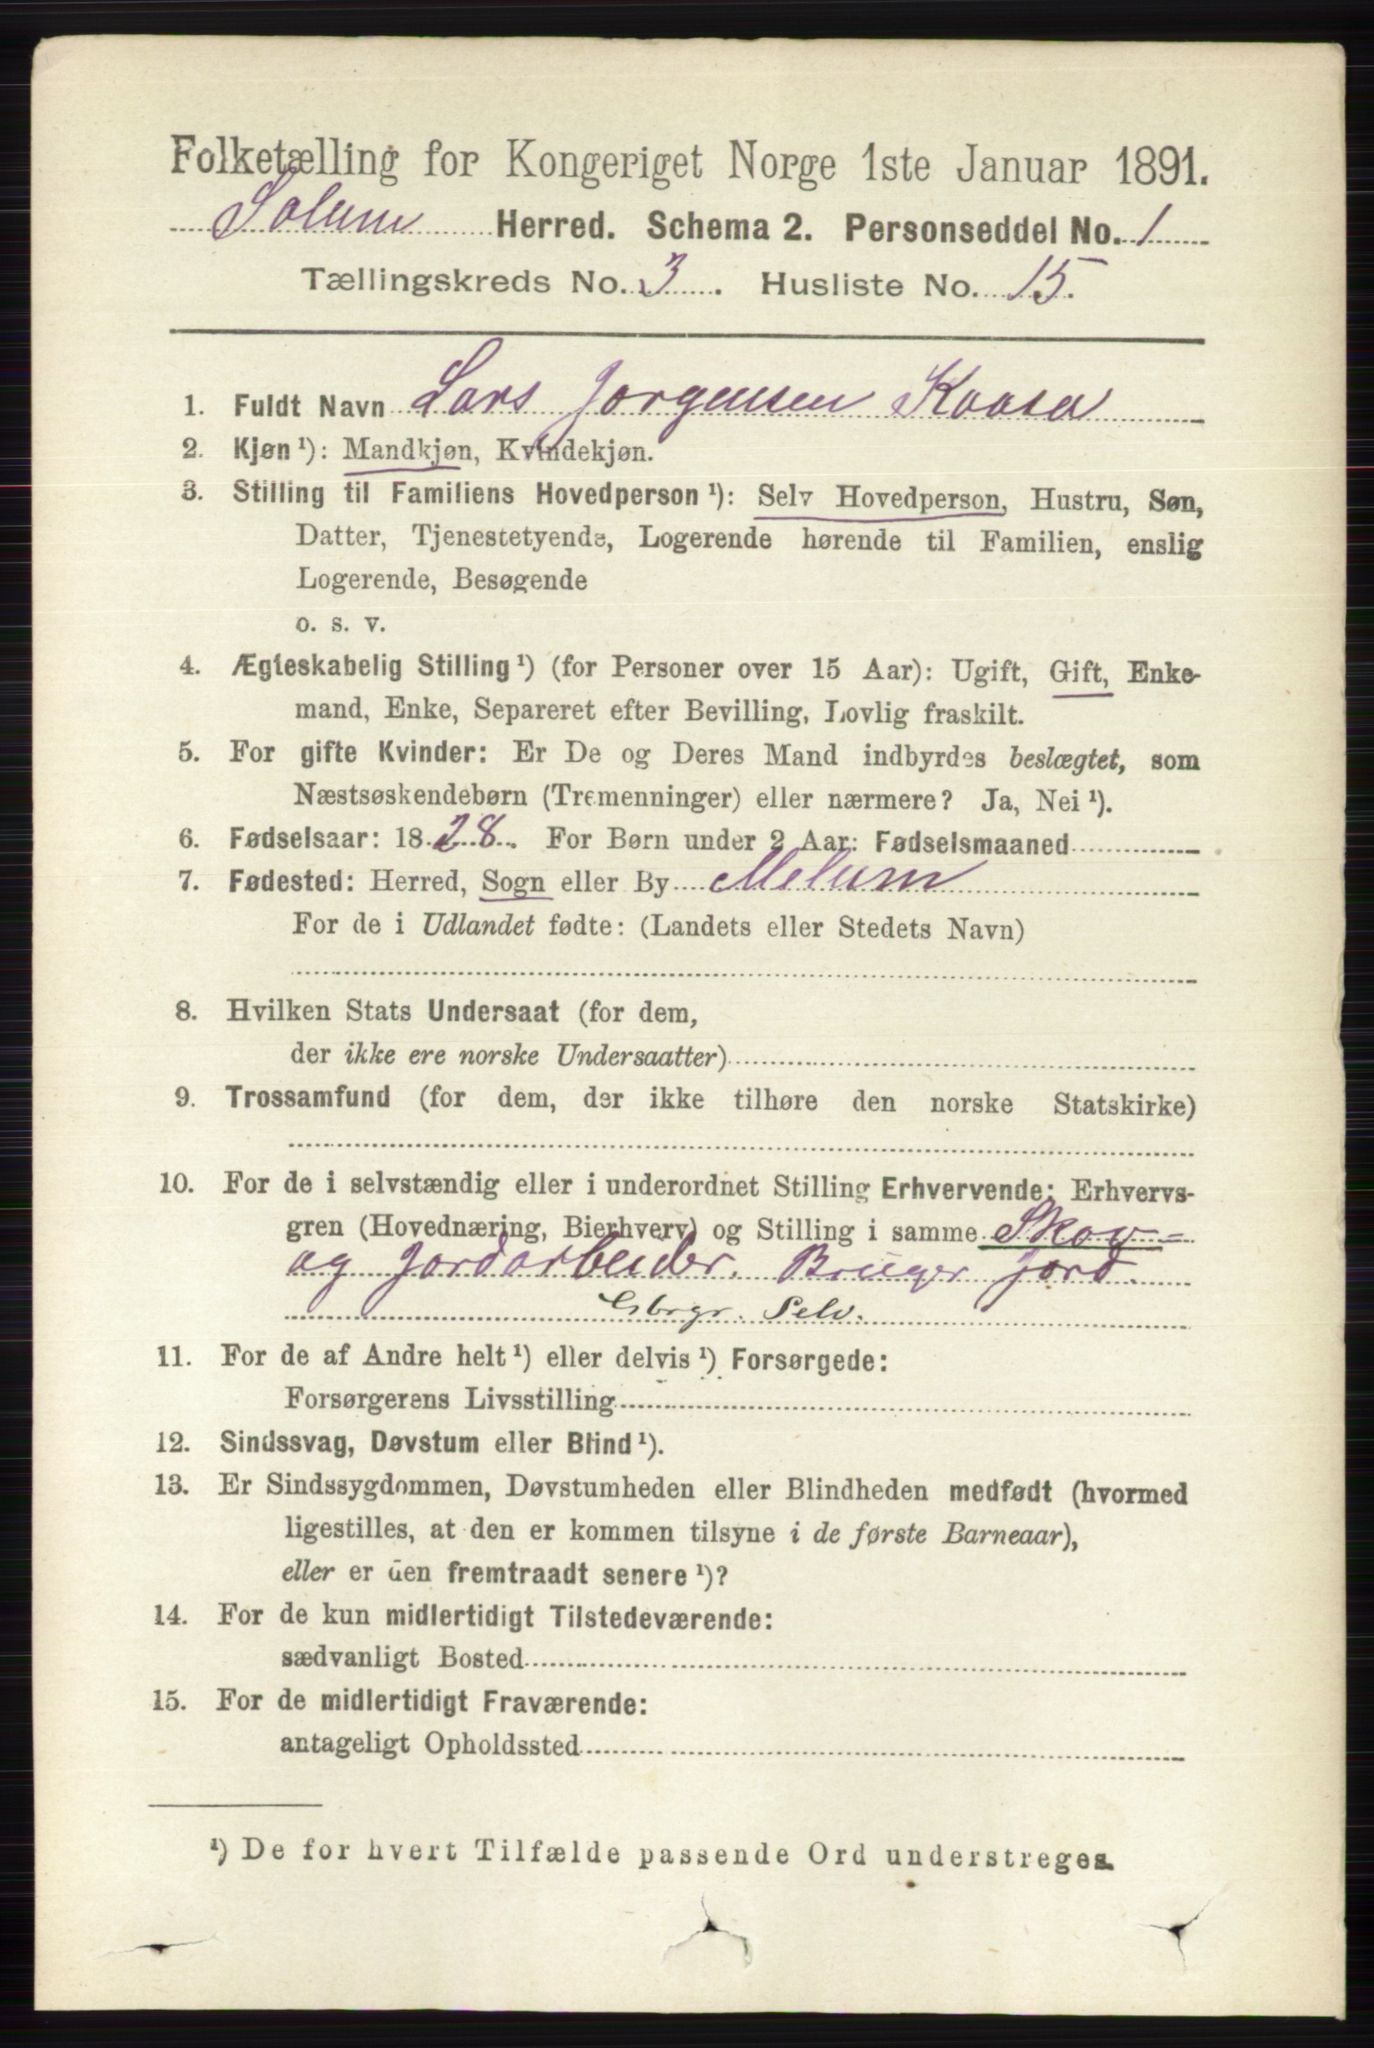 Folketælling for Kongeriget Norge 1ste Januar 1891.
Solum Herred. Schema 2. Personseddel No. 1
Tællingskreds No. 3. Husliste No. 15.
1. Fuldt Navn Lars Jørgensen Kaasa
2. Kjøn ¹): Mandkjøn, Kvindekjøn.
3. Stilling til Familiens Hovedperson ¹): Selv Hovedperson, Hustru, Søn,
Datter, Tjenestetyende, Logerende hørende til Familien, enslig
Logerende, Besøgende
o. s. v.
4. Ægteskabelig Stilling ¹) (for Personer over 15 Aar): Ugift, Gift, Enke-
mand, Enke, Separeret efter Bevilling, Lovlig fraskilt.
5. For gifte Kvinder: Er De og Deres Mand indbyrdes beslægtet, som
Næstsøskendebørn (Tremenninger) eller nærmere? Ja, Nei ¹).
6. Fødselsaar: 1828. For Børn under 2 Aar: Fødselsmaaned
7. Fødested: Herred, Sogn eller By Melum
For de i Udlandet fødte: (Landets eller Stedets Navn)
8. Hvilken Stats Undersaat (for dem,
der ikke ere norske Undersaatter)
9. Trossamfund (for dem, der ikke tilhøre den norske Statskirke)
10. For de i selvstændig eller i underordnet Stilling Erhvervende: Erhvervs-
gren (Hovednæring, Bierhverv) og Stilling i samme Skov-
og Jordarbeider. Bruger jord.
Gbrgr. Selv.
11. For de af Andre helt ¹) eller delvis ¹) Forsørgede:
Forsørgerens Livsstilling
12. Sindssvag, Døvstum eller Blind ¹).
13. Er Sindssygdommen, Døvstumheden eller Blindheden medfødt (hvormed
ligestilles, at den er kommen tilsyne i de første Barneaar),
eller er den fremtraadt senere ¹)?
14. For de kun midlertidigt Tilstedeværende:
sædvanligt Bosted
15. For de midlertidigt Fraværende:
antageligt Opholdssted
¹) De for hvert Tilfælde passende Ord understreges.